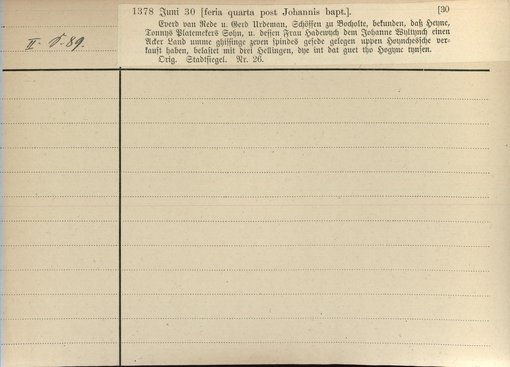 1378 Juni 30 [feria quarta post Johannis bapt.]. [30
Everd van Rede u. Gerd Urdeman, Schöffen zu Bocholte, bekunden, daß Heyne,
Tonnys Platemekers Sohn, u. dessen Frau Hadewych dem Johanne Wyltynch einen
Acker Land umme ghissinge zeven spindes gesede gelegen uppen Hoynchessche ver-
kauft haben, belastet mit drei Hellingen, dye int dat guet tho Hoginc tynsen.
Orig. Stadtsiegel. Nr. 26.
II. 89.